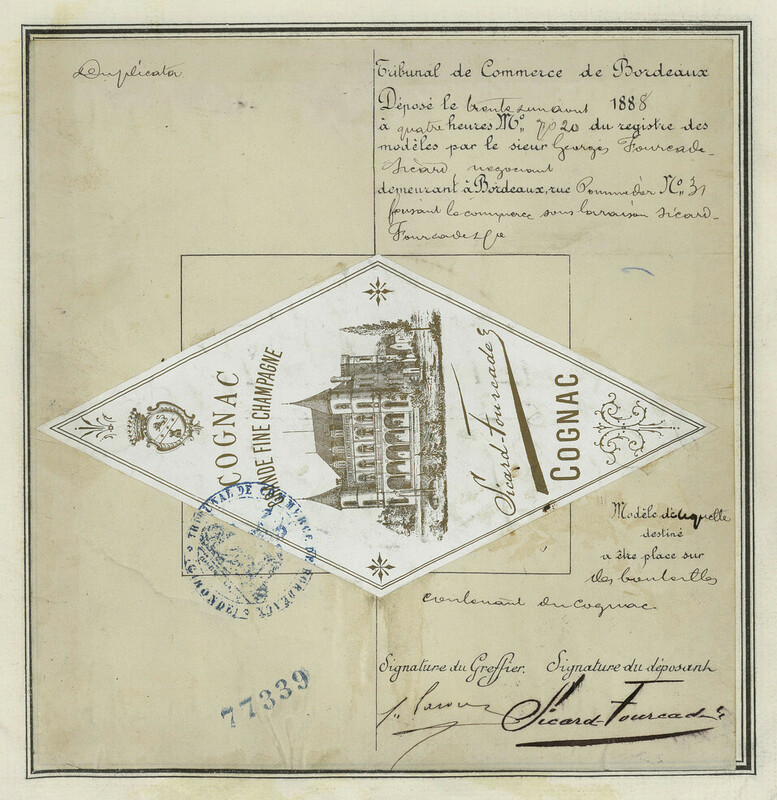 Duplicata
Tribunal de Commerce de Bordeaux
Déposé le trente un aout 1888
à quatre heures M. No 20 du registre des
modèles par le sieur Georges Fourcade-
Sicard négociant
demeurant à Bordeaux, rue No. 31
faisant le commerce sous la raison Sicard-
Fourcade & Cie
COGNAC
GRANDE FINE CHAMPAGNE
Sicard-Fourcade
COGNAC
TRIBUNAL DE COMMERCE DE BORDEAUX
(GIRONDE)
Modèle d'étiquette
destiné
a être place sur
des bouteilles
contenant du cognac
Signature du Greffier. Signature du déposant
Sicard-Fourcade
77339